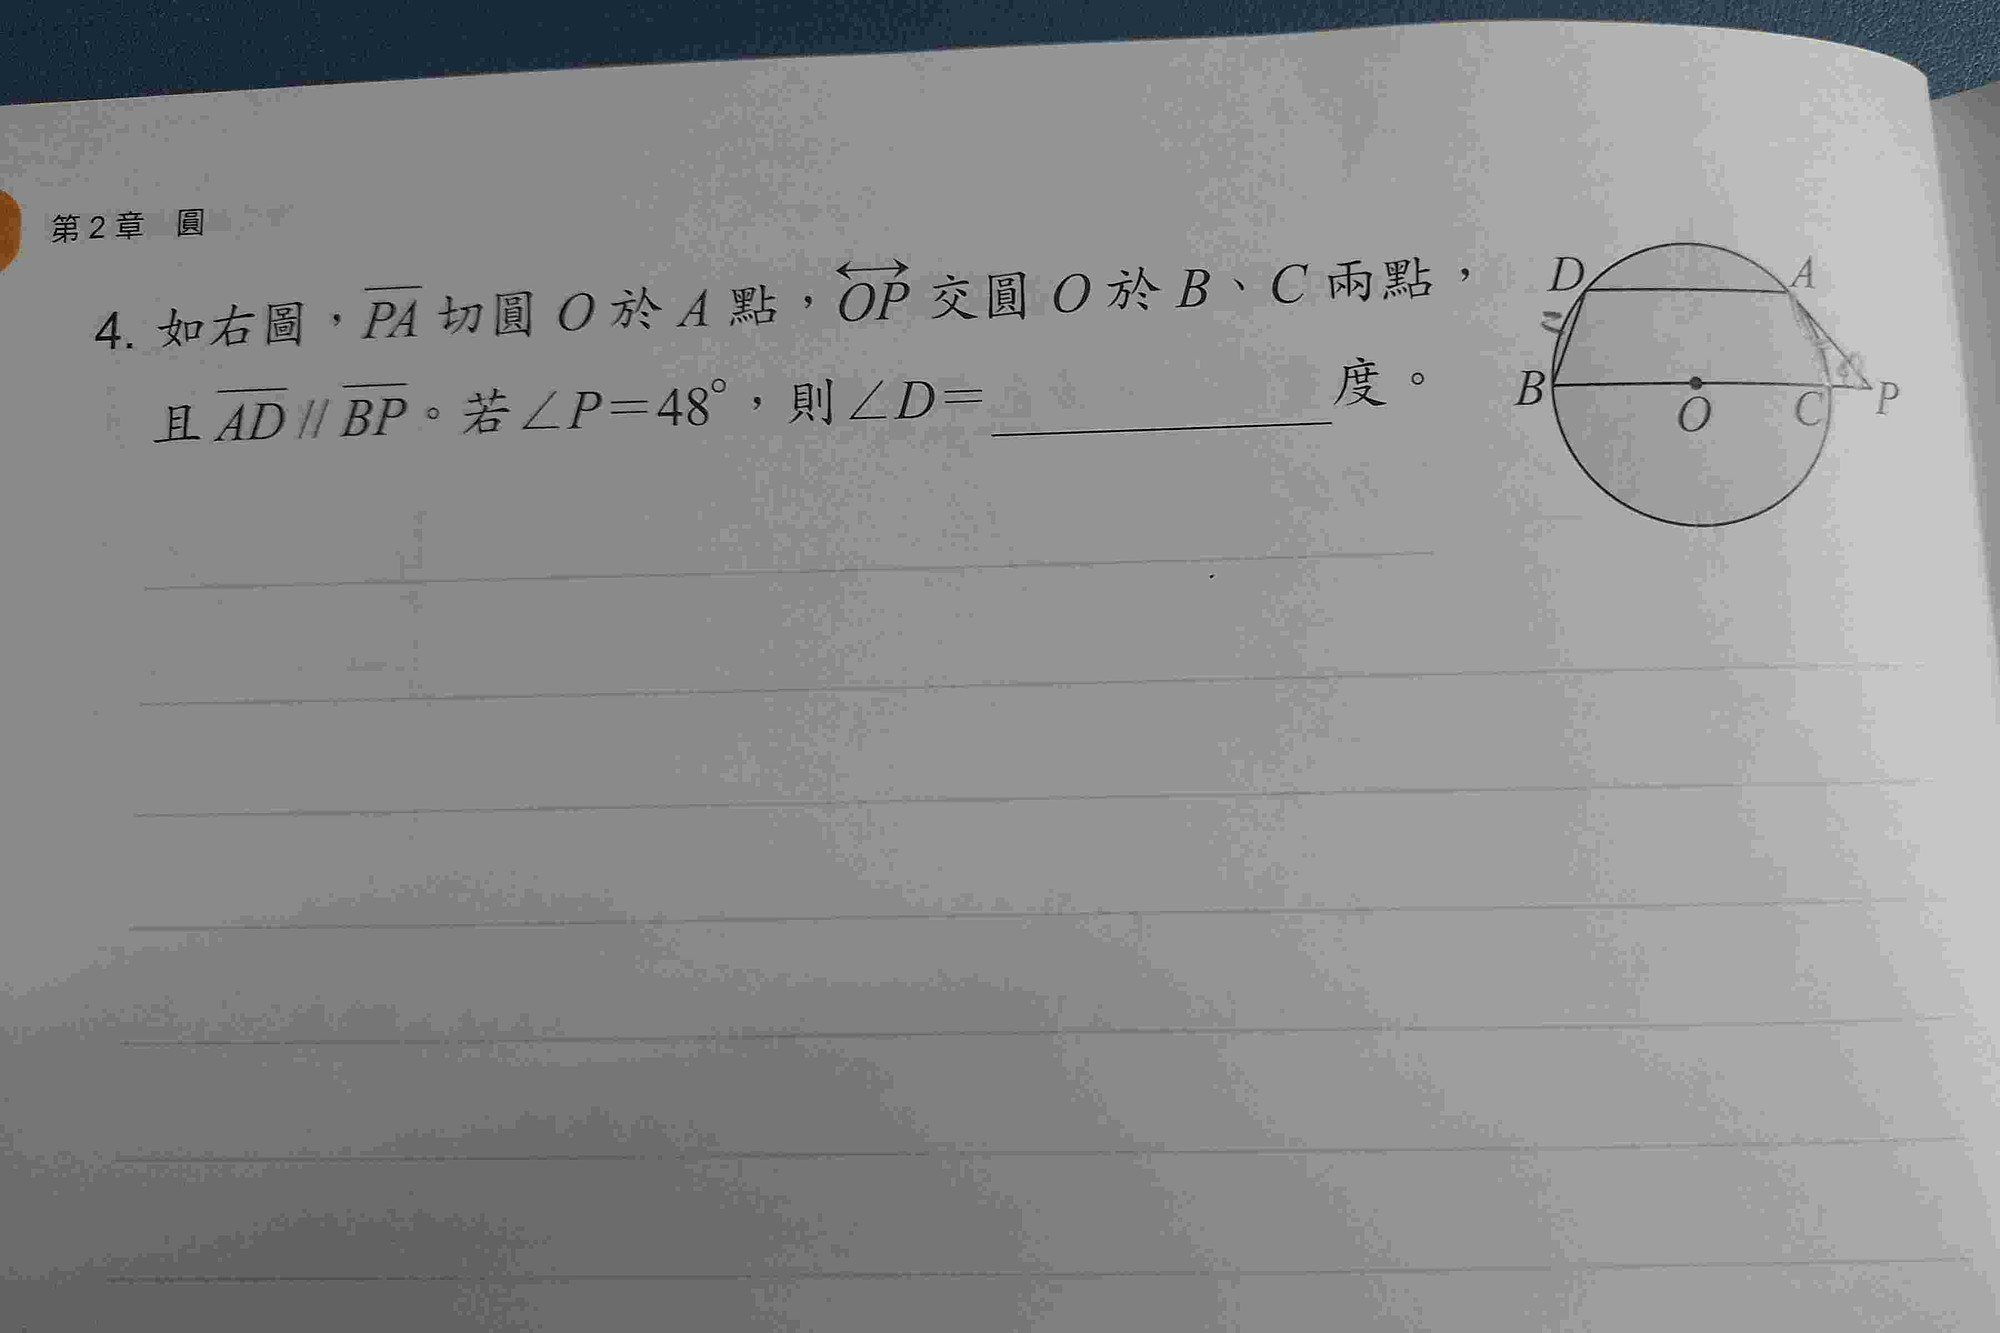 第2章 圓
4. 如右圖，PA 切圓 O 於 A 點，OP 交圓 O 於 B、C 兩點，
且 AD // BP。若∠P=48°，則∠D=__________度。
D A
B O C P